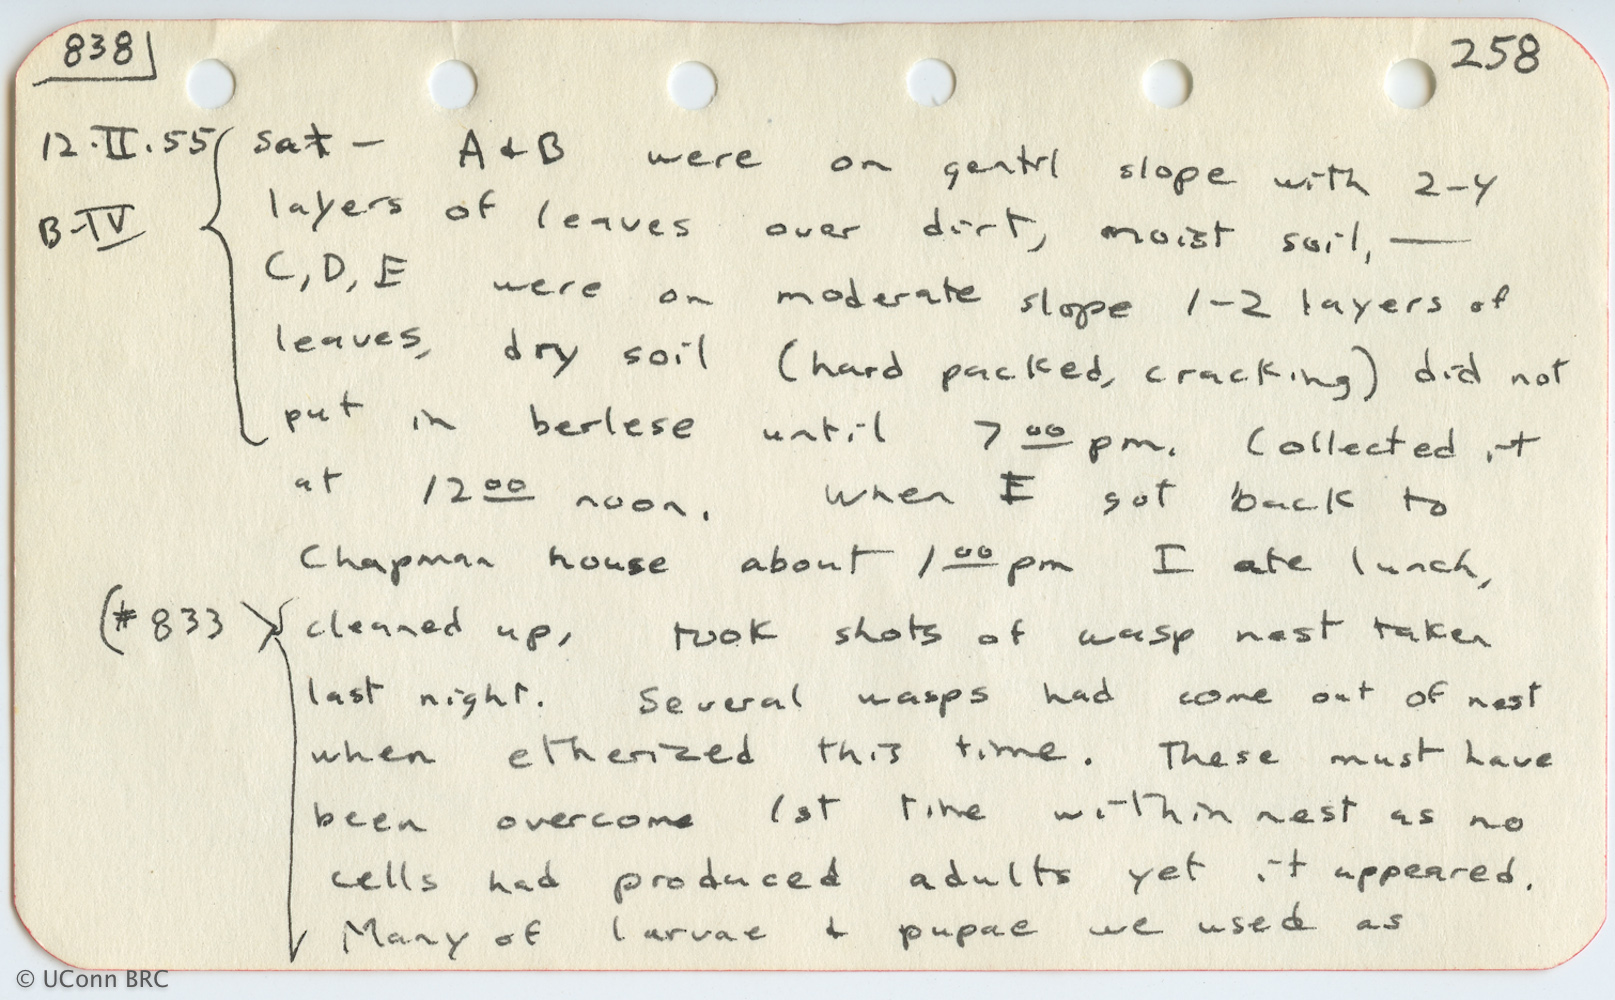 838 258
12.II.55 Sat — A & B were on gentrl slope with 2-4
B-IV layers of leaves over dirt, moist soil, —
C, D, E were on moderate slope 1-2 layers of
leaves, dry soil (hard packed, cracking) did not
put in berlese until 7 00 pm. Collected it
at 12 00 noon. When I got back to
Chapman house about 1 00 pm I ate lunch,
(# 833 cleaned up, took shots of wasp nest taken
last night. Several wasps had come out of nest
when etherized this time. These must have
been overcome 1st time within nest as no
cells had produced adults yet it appeared.
Many of larvae & pupae we used as
© UConn BRC